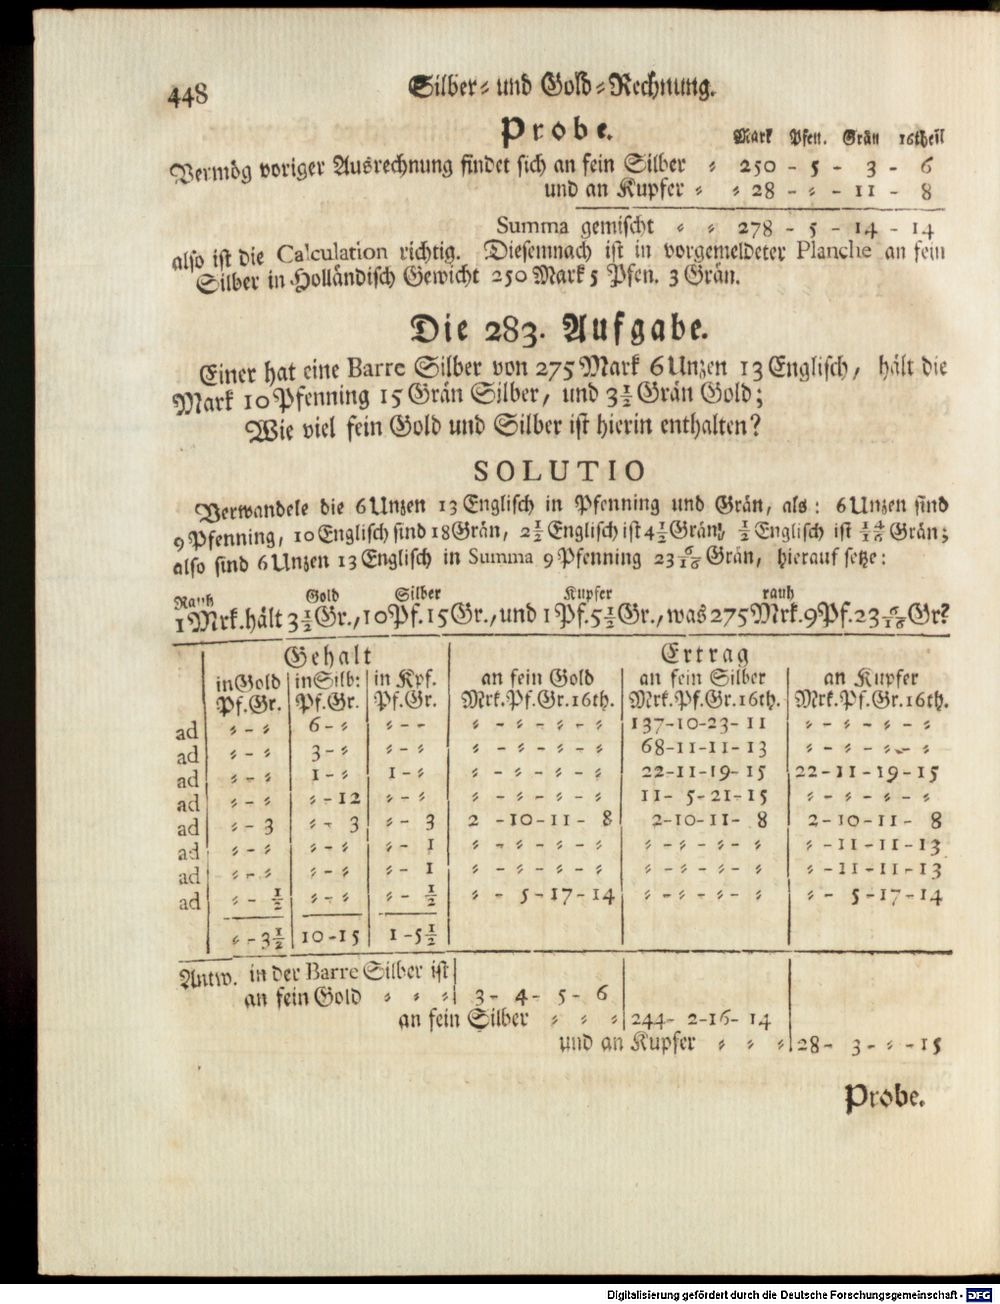 448
Silber⸗ und Gold⸗Rechnung.
Probe.
Mark Pfen. Grän 16theil
Vermög voriger Ausrechnung findet sich an fein Silber ⸗ 250 - 5 - 3 - 6
und an Kupfer ⸗ ⸗ 28 - ⸗ - 11 - 8
Summa gemischt ⸗ ⸗ 278 - 5 - 14 - 14
also ist die Calculation richtig. Diesemnach ist in vorgemeldeter Planche an fein
Silber in Holländisch Gewicht 250 Mark 5 Pfen. 3 Grän.
Die 283. Aufgabe.
Einer hat eine Barre Silber von 275 Mark 6 Unzen 13 Englisch, hält die
Mark 10 Pfenning 15 Grän Silber, und 3½ Grän Gold;
Wie viel fein Gold und Silber ist hierin enthalten?
SOLUTIO
Verwandele die 6 Unzen 13 Englisch in Pfenning und Grän, als: 6 Unzen sind
9 Pfenning, 10 Englisch sind 18 Grän, 2½ Englisch ist 4½ Grän, ½ Englisch ist 14/16 Grän;
also sind 6 Unzen 13 Englisch in Summa 9 Pfenning 23 6/16 Grän, hierauf setze:
Rauh Gold Silber Kupfer rauh
1 Mrk. hält 3½ Gr., 10 Pf. 15 Gr., und 1 Pf. 5½ Gr., was 275 Mrk. 9 Pf. 23 6/16 Gr?
Gehalt Ertrag
in Gold in Silb: in Kpf. an fein Gold an fein Silber an Kupfer
Pf. Gr. Pf. Gr. Pf. Gr. Mrk. Pf. Gr. 16th. Mrk. Pf. Gr. 16th. Mrk. Pf. Gr. 16th.
ad ⸗ - ⸗ 6 - ⸗ ⸗ - ⸗ ⸗ - ⸗ - ⸗ - ⸗ 137-10-23-11 ⸗ - ⸗ - ⸗ - ⸗
ad ⸗ - ⸗ 3 - ⸗ ⸗ - ⸗ ⸗ - ⸗ - ⸗ - ⸗ 68-11-11-13 ⸗ - ⸗ - ⸗ - ⸗
ad ⸗ - ⸗ 1 - ⸗ 1 - ⸗ ⸗ - ⸗ - ⸗ - ⸗ 22-11-19-15 22-11-19-15
ad ⸗ - ⸗ ⸗ - 12 ⸗ - ⸗ ⸗ - ⸗ - ⸗ - ⸗ 11- 5-21-15 ⸗ - ⸗ - ⸗ - ⸗
ad ⸗ - 3 ⸗ - 3 ⸗ - 3 2 -10-11- 8 2-10-11- 8 2-10-11- 8
ad ⸗ - ⸗ ⸗ - ⸗ ⸗ - 1 ⸗ - ⸗ - ⸗ - ⸗ ⸗ - ⸗ - ⸗ - ⸗ ⸗ -11-11-13
ad ⸗ - ⸗ ⸗ - ⸗ ⸗ - 1 ⸗ - ⸗ - ⸗ - ⸗ ⸗ - ⸗ - ⸗ - ⸗ ⸗ -11-11-13
ad ⸗ - ½ ⸗ - ⸗ ⸗ - ½ ⸗ - 5-17-14 ⸗ - ⸗ - ⸗ - ⸗ ⸗ - 5-17-14
⸗ - 3½ 10-15 1-5½
Antw. in der Barre Silber ist
an fein Gold ⸗ ⸗ ⸗ 3- 4- 5- 6
an fein Silber ⸗ ⸗ ⸗ 244- 2-16- 14
und an Kupfer ⸗ ⸗ ⸗ 28- 3- ⸗ -15
Probe.
Digitalisierung gefördert durch die Deutsche Forschungsgemeinschaft - DFG